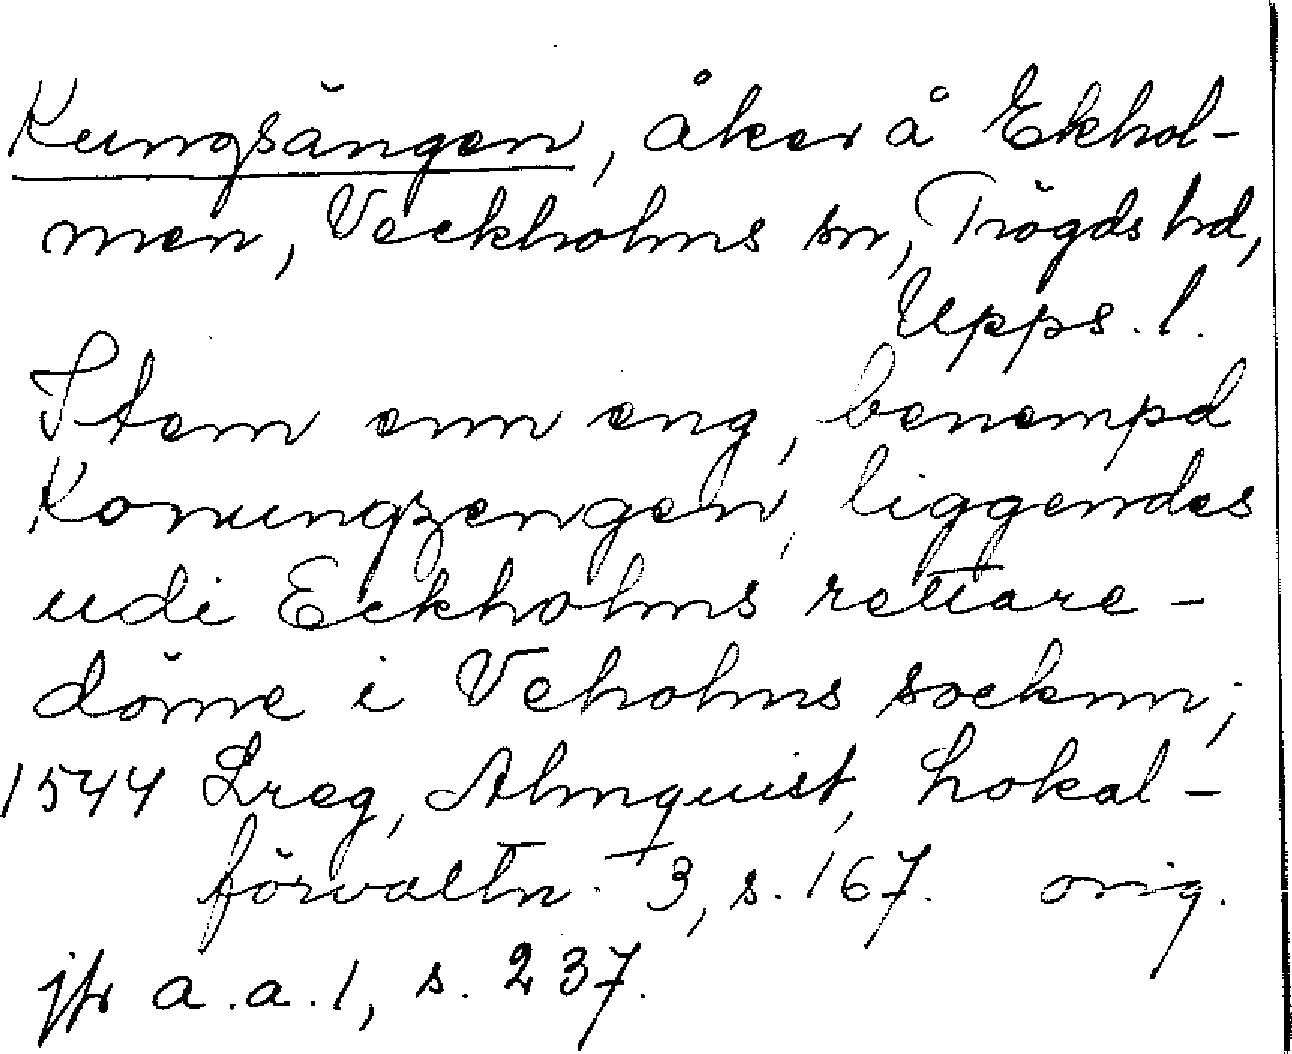 Kungsängen, åker å Ekhol-
men, Veckholms sn, Trögds hd,
Upps. l.
Item enn eng, benempd
Konungzengen, liggendes
udi Eckholms rettare-
döme i Veholms socknn;
1544 Lreg, Almquist, Lokal-
förvaltn. 3, s. 167. orig.
jfr a.a. 1, s. 237.